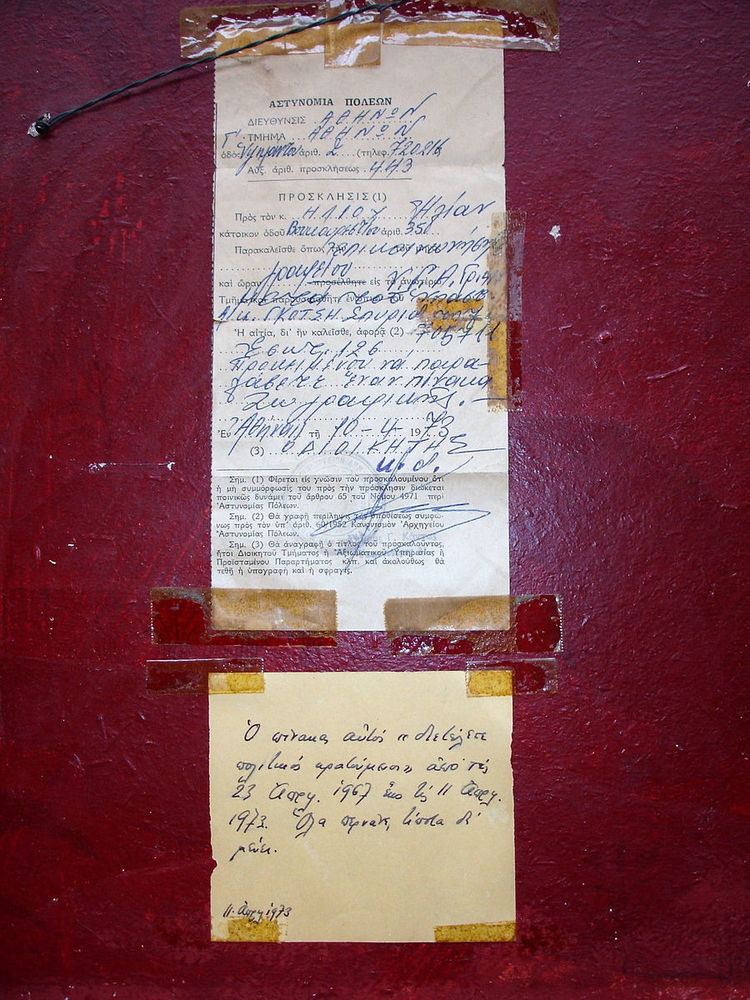 ΑΣΤΥΝΟΜΙΑ ΠΟΛΕΩΝ
ΔΙΕΥΘΥΝΣΙΣ ΑΘΗΝΩΝ
Γ' ΤΜΗΜΑ ΑΘΗΝΩΝ
ὁδὸς ἀριθ. 2 (τηλεφ. 720.216
Αὔξ. ἀριθ. προσκλήσεως 443
ΠΡΟΣΚΛΗΣΙΣ (1)
Πρὸς τὸν κ. ΗΛΙΟΥ Ἠλίαν
κάτοικον ὁδοῦ Βουκουρεστίου ἀριθ. 35
Παρακαλεῖσθε ὅπως
Γραφείου
καὶ ὥραν προσέλθητε εἰς τὸ ἀνωτέρω
Α/κ. ΓΚΟΤΣΗ
Ἡ αἰτία, δι' ἣν καλεῖσθε, ἀφορᾷ (2) 705.711
Ἐσωτ. 126
προκειμένου νὰ παρα-
λάβετε ἕναν πίνακα
ζωγραφικῆς. —
Ἐν Ἀθήναις τῇ 10-4-1973
(3) Ο ΔΙΟΙΚΗΤΗΣ
κ.ἀ.
Σημ. (1) Φέρεται εἰς γνῶσιν τοῦ προσκαλουμένου, ὅτι
ἡ μὴ συμμόρφωσίς του πρὸς τὴν πρόσκλησιν διώκεται
ποινικῶς δυνάμει τοῦ ἄρθρου 65 τοῦ Νόμου 4971 περὶ
Ἀστυνομίας Πόλεων.
Σημ. (2) Θὰ γραφῇ περίληψις τῆς ὑποθέσεως συμφώ-
νως πρὸς τὸν ὑπ' ἀριθ. 60/1952 Κανονισμὸν Ἀρχηγείου
Ἀστυνομίας Πόλεων.
Σημ. (3) Θὰ ἀναγραφῇ ὁ τίτλος τοῦ προσκαλοῦντος,
ἤτοι Διοικητοῦ Τμήματος ἢ Ἀξιωματικοῦ Ὑπηρεσίας ἢ
Προϊσταμένου Παραρτήματος κλπ. καὶ ἀκολούθως θὰ
τεθῇ ἡ ὑπογραφὴ καὶ ἡ σφραγίς.
Ὁ πίνακας αὐτὸς «διετέλεσε
πολιτικὸς κρατούμενος» ἀπὸ τὶς
23 Ἀπρ. 1967 ἕως τὶς 11 Ἀπρ.
1973. Ὅλα περνᾶν, τίποτα δὲ
μένει.
11 Ἀπρ. 1973